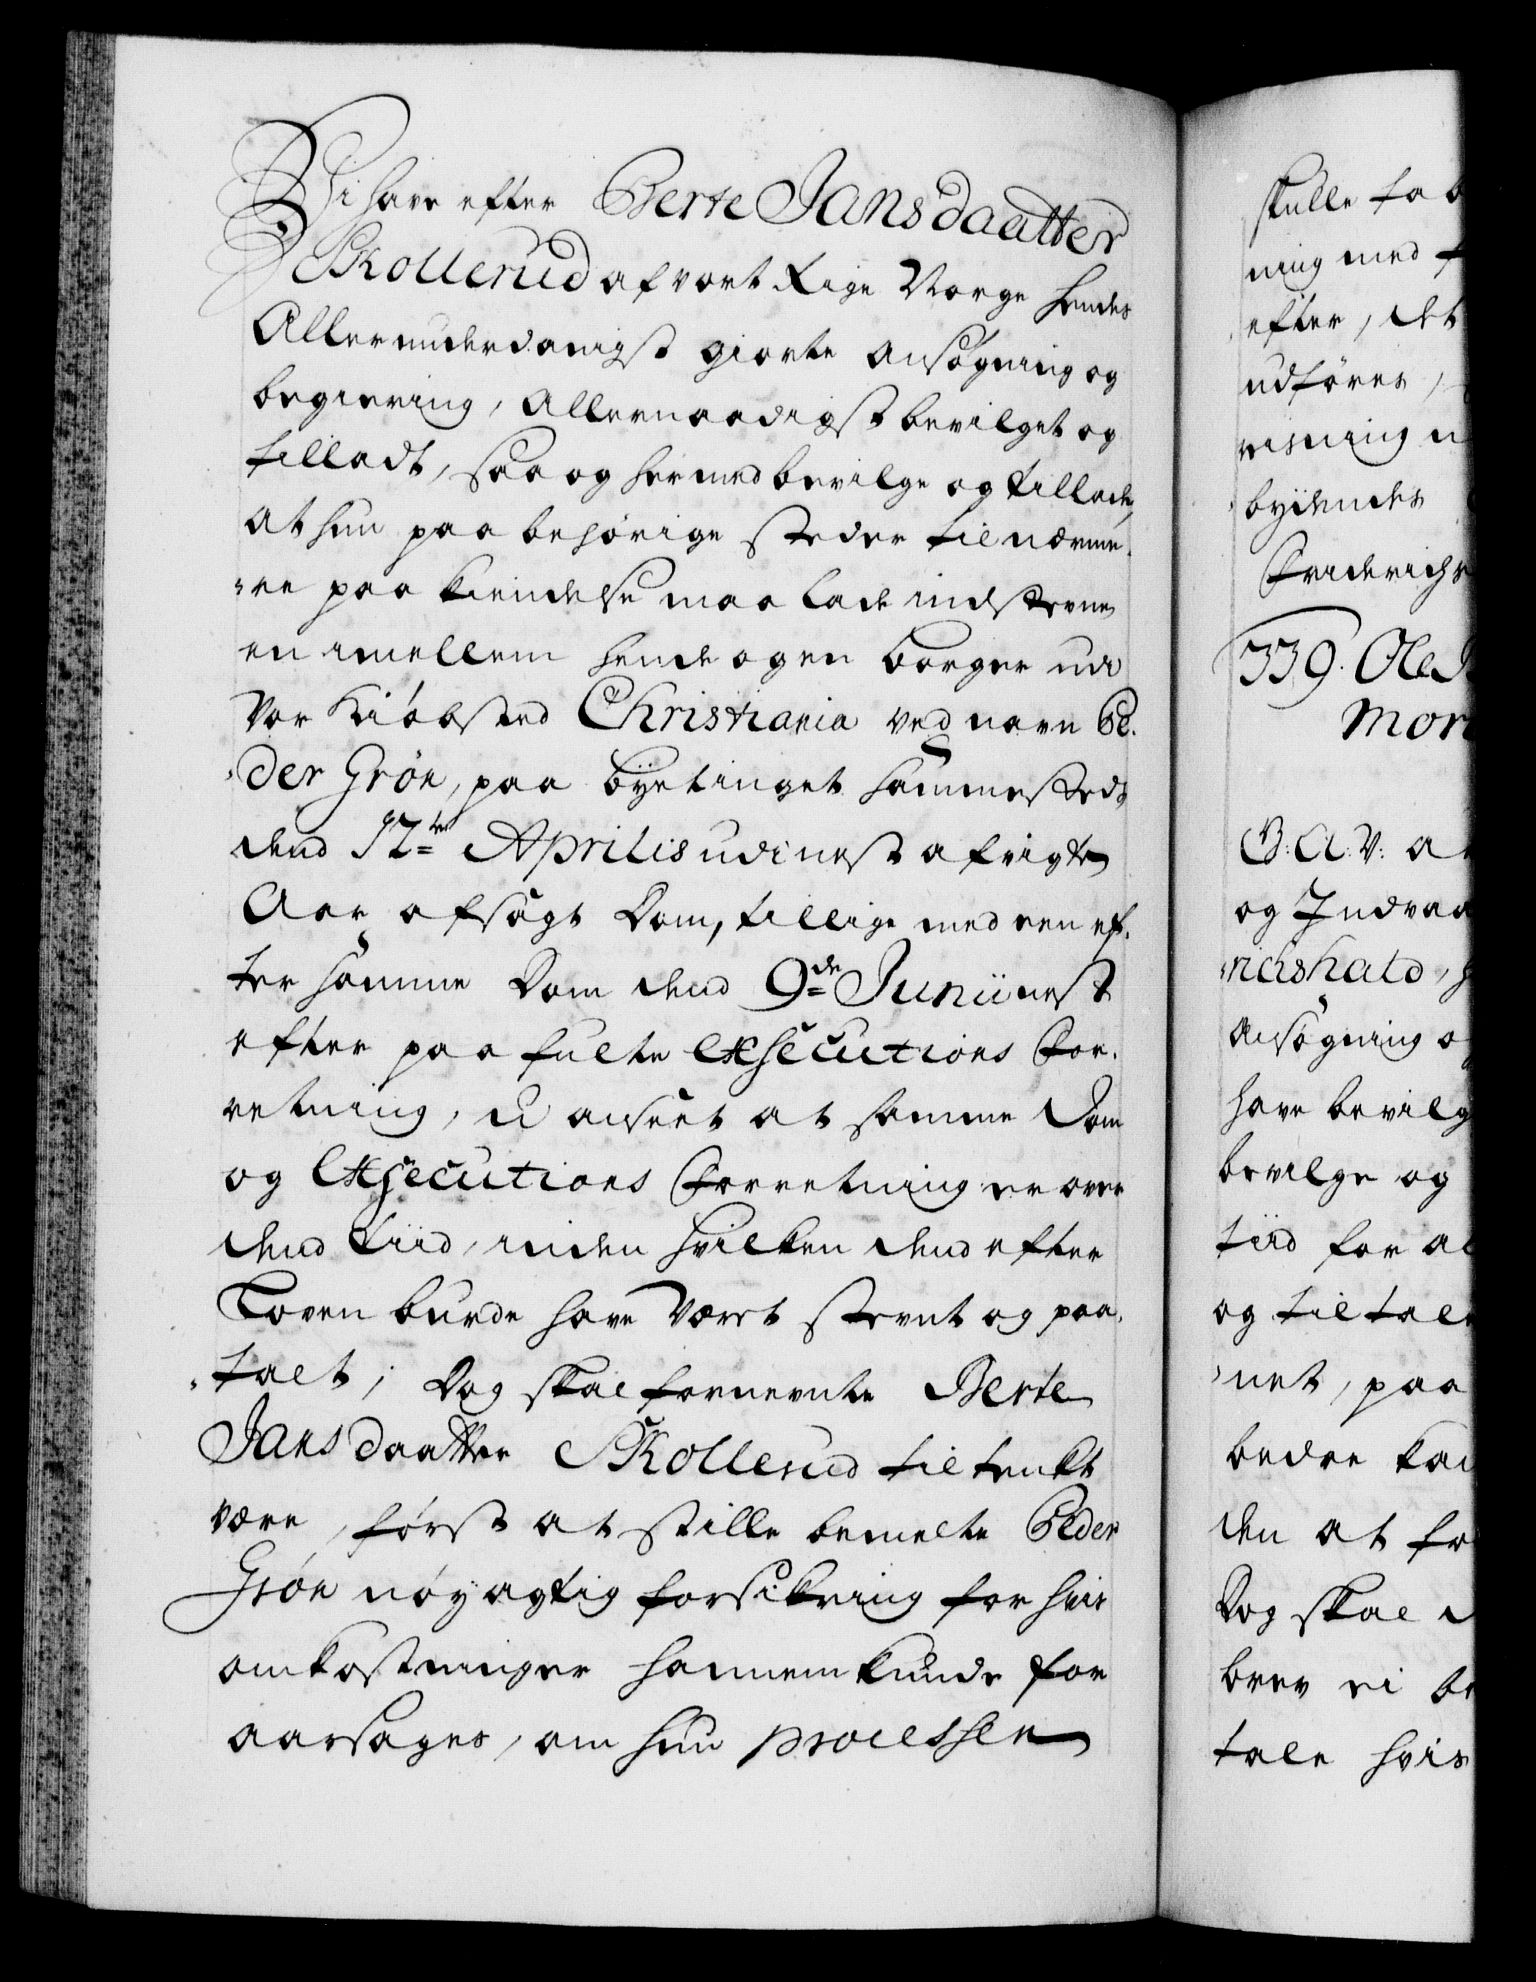 Vi have efter Berte Jansdaatter
Skollerud af vort Rige Norge hendes
Allerunderdanigst giorte Ansøgning og
begiering, Allernaadigst bevilget og
tilladt, saa og hermed bevilge og tillade,
at hun paa behørige steder til nærme,
,re paa kiendelse maa lade indstevne
en imellem hende og en borger udi
Vor Kiøbsted Christiania ved navn Pe,
,der Grön, paa byetinget sammesteds
dend 12te Aprilis udi nest afvigte
Aar afsagt Dom, tillige med een ef,
ter samme Dom dend 9de Junii nest
efter paa fulte Exsecutions For,
retning, u anseet at samme Dom
og Exsecutions Forretning er over
dend tiid, inden hvilken dend efter
Loven burde have været stevnt og paa,
,talt; Dog skal fornevnte Berte
Jansdaatter Skollerud tiltenkt
være, først at stille bemelte Peder
Grön nøyagtig forsikring for hvis
omkostninger hannem kunde for
aarsages, om hun processen
skulle tab
ning med f
efter, det
udføres,
visning
bydendes
Friderichs
339. Ole
Mor
G: A: V: a
og Indvaa
,richshald, h
Ansøgning o
have bevilg
bevilge og
tiid for al
og tiltale
,net, paa
bedre kan
den at fo
Dog skal
brev ei be
tale hvis